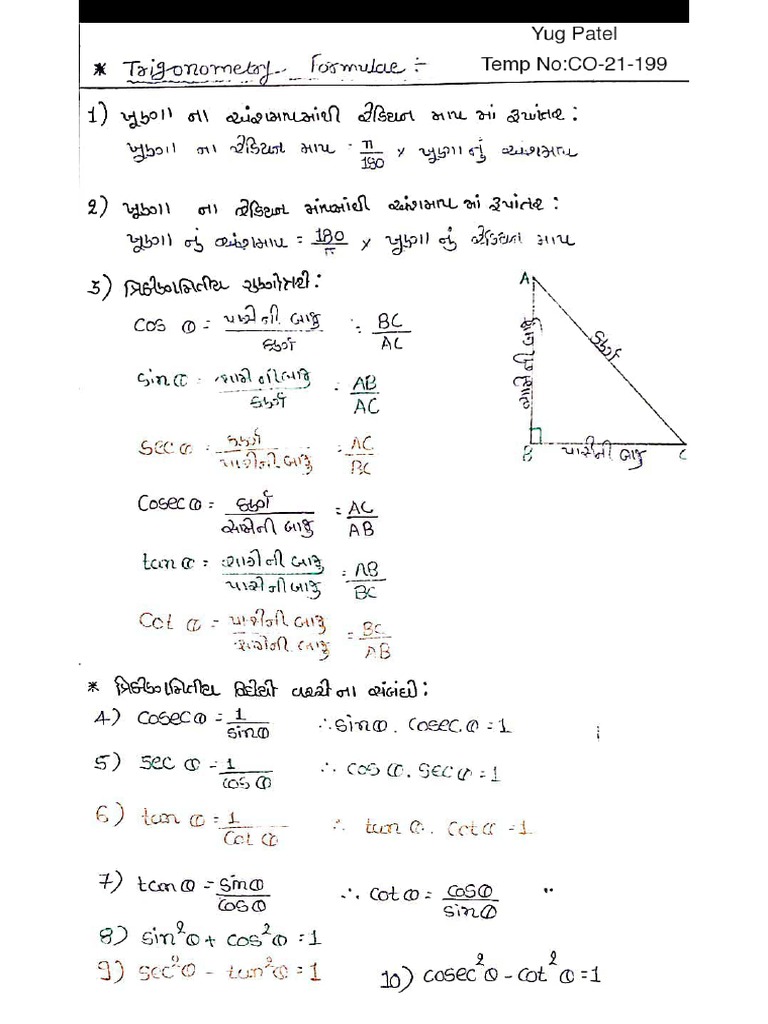 Yug Patel
* Trigonometry Formulae :-
Temp No:CO-21-199
1) ખૂણા ના અંશમાપમાંથી રેડિયન માપ માં રૂપાંતર :
ખૂણા ના રેડિયન માપ = π/180 × ખૂણા નું અંશમાપ
2) ખૂણા ના રેડિયન માપમાંથી અંશમાપ માં રૂપાંતર :
ખૂણા નું અંશમાપ = 180/π × ખૂણા નું રેડિયન માપ
3) ત્રિકોણમિતીય ગુણોત્તરો :
cos θ = પાસેની બાજુ/કર્ણ = BC/AC
sin θ = સામેની બાજુ/કર્ણ = AB/AC
sec θ = કર્ણ/પાસેની બાજુ = AC/BC
Cosec θ = કર્ણ/સામેની બાજુ = AC/AB
tan θ = સામેની બાજુ/પાસેની બાજુ = AB/BC
Cot θ = પાસેની બાજુ/સામેની બાજુ = BC/AB
A
સામેની બાજુ
કર્ણ
B પાસેની બાજુ C
* ત્રિકોણમિતીય વિધેયો વચ્ચેના સંબંધો :
4) cosec θ = 1/sin θ ∴ sin θ . cosec θ = 1
5) sec θ = 1/cos θ ∴ cos θ . sec θ = 1
6) tan θ = 1/cot θ ∴ tan θ . cot θ = 1
7) tan θ = sin θ/cos θ ∴ cot θ = cos θ/sin θ
8) sin²θ + cos²θ = 1
9) sec²θ - tan²θ = 1
10) cosec²θ - cot²θ = 1